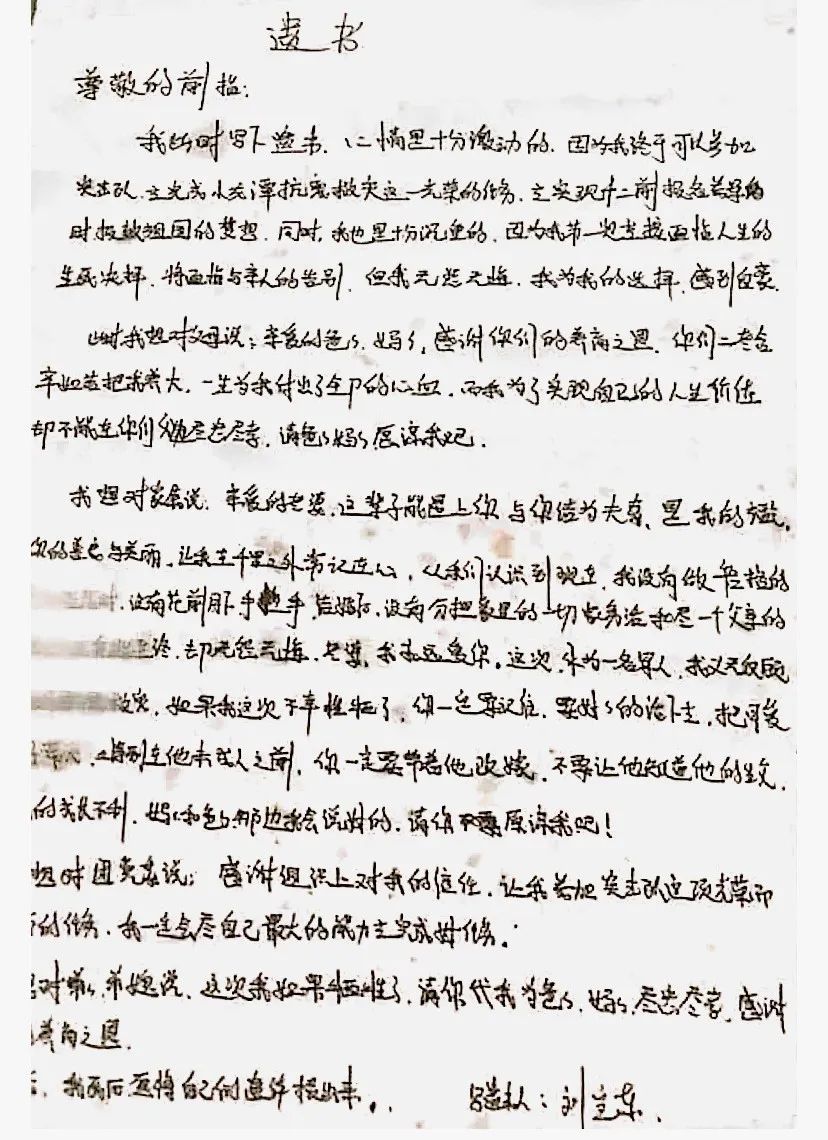 遗书
尊敬的前指:
我此时写下遗书、心情是十分激动的,因为我终于可以参加
突击队,去完成小岗潭抗震救灾这一光荣的任务,去实现十二前报名参军的
时报效祖国的梦想,同时,我也是十分沉重的,因为我第一次直接面临人生的
生死决择,将面临与亲人的告别,但我无怨无悔,我为我的选择,感到自豪.
此时我想对父母说:亲爱的爸爸、妈妈,感谢你们的养育之恩,你们二老含
辛如苦把我养大,一生为我付出了全部的心血,而我为了实现自己的人生价值
却不能在你们身边尽忠尽孝,请爸爸妈妈原谅我吧.
我想对家属说:亲爱的老婆,这辈子能遇上你与你结为夫妻、是我的
你的善良与美丽,让我在千里之外常记在心,从我们认识到现在,我没有做
没有花前月下手 手 没有分担家里的一切家务活和尽一个父亲的
却无怨无悔,老婆,我永远爱你,这次,作为一名军人,我义无反顾
如果我这次不幸牺牲了,你一定要记住,要好好的活下去,把
在他未成人之前,你一定要带着他改嫁,不要让他知道他的生父,
的成长不利,妈妈和爸爸那边我会说好的,请你 原谅我吧!
想对团党委说:感谢组织上对我的信任,让我参加突击队这项光荣而
的任务,我一定会尽自己最大的能力去完成好任务.
想对 弟媳说,这次我如果牺牲了,请你代我为爸爸、妈妈,尽忠尽孝,感谢
养育之恩.
我 将自己的遗体 出来.. 写遗书人:刘 东.